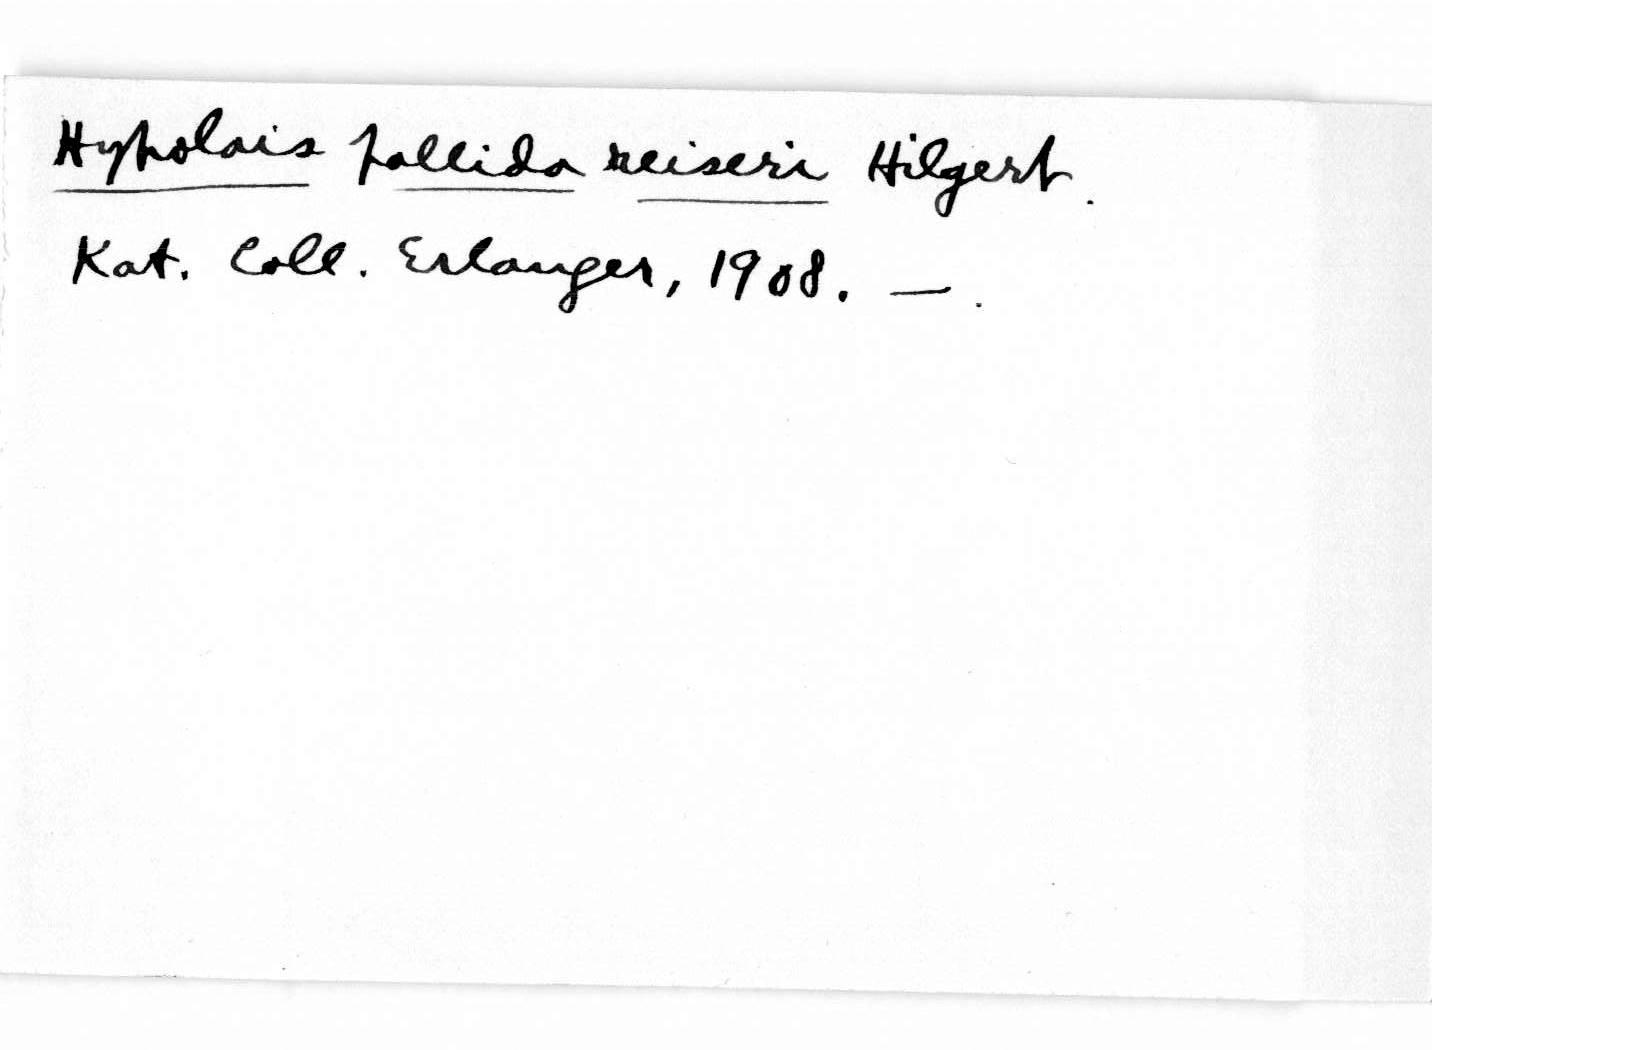 Hypolais pallida reiseri Hilgert.
Kat. Coll. Erlanger, 1908. — .